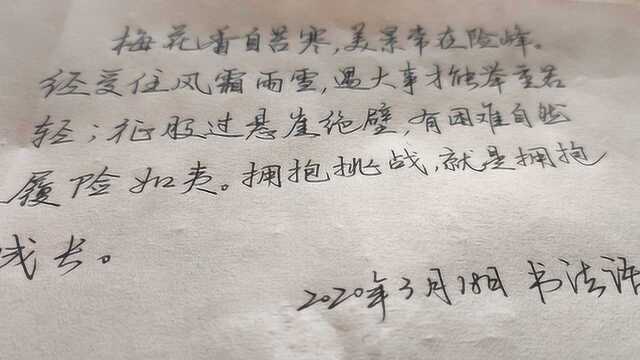 梅花香自苦寒,美景常在险峰。
经受住风霜雨雪,遇大事才能举重若
轻;征服过悬崖绝壁,有困难自能
履险如夷。拥抱挑战,就是拥抱
成长。
2020年3月18日 书法语